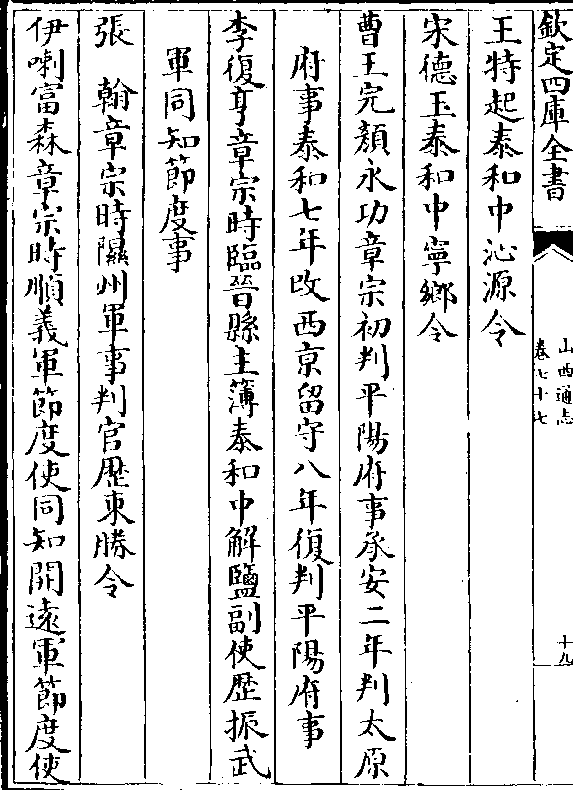 欽定四庫全書
山西通志
卷七十七
十九
王特起泰和中沁源令
宋德玉泰和中寧鄉令
曹王完顏永功章宗初判平陽府事承安二年判太原
府事泰和七年改西京留守八年復判平陽府事
李復亨章宗時臨晉縣主簿泰和中解鹽副使歷振武
軍同知節度事
張翰章宗時隰州軍事判官歷東勝令
伊喇富森章宗時順義軍節度使同知開遠軍節度使